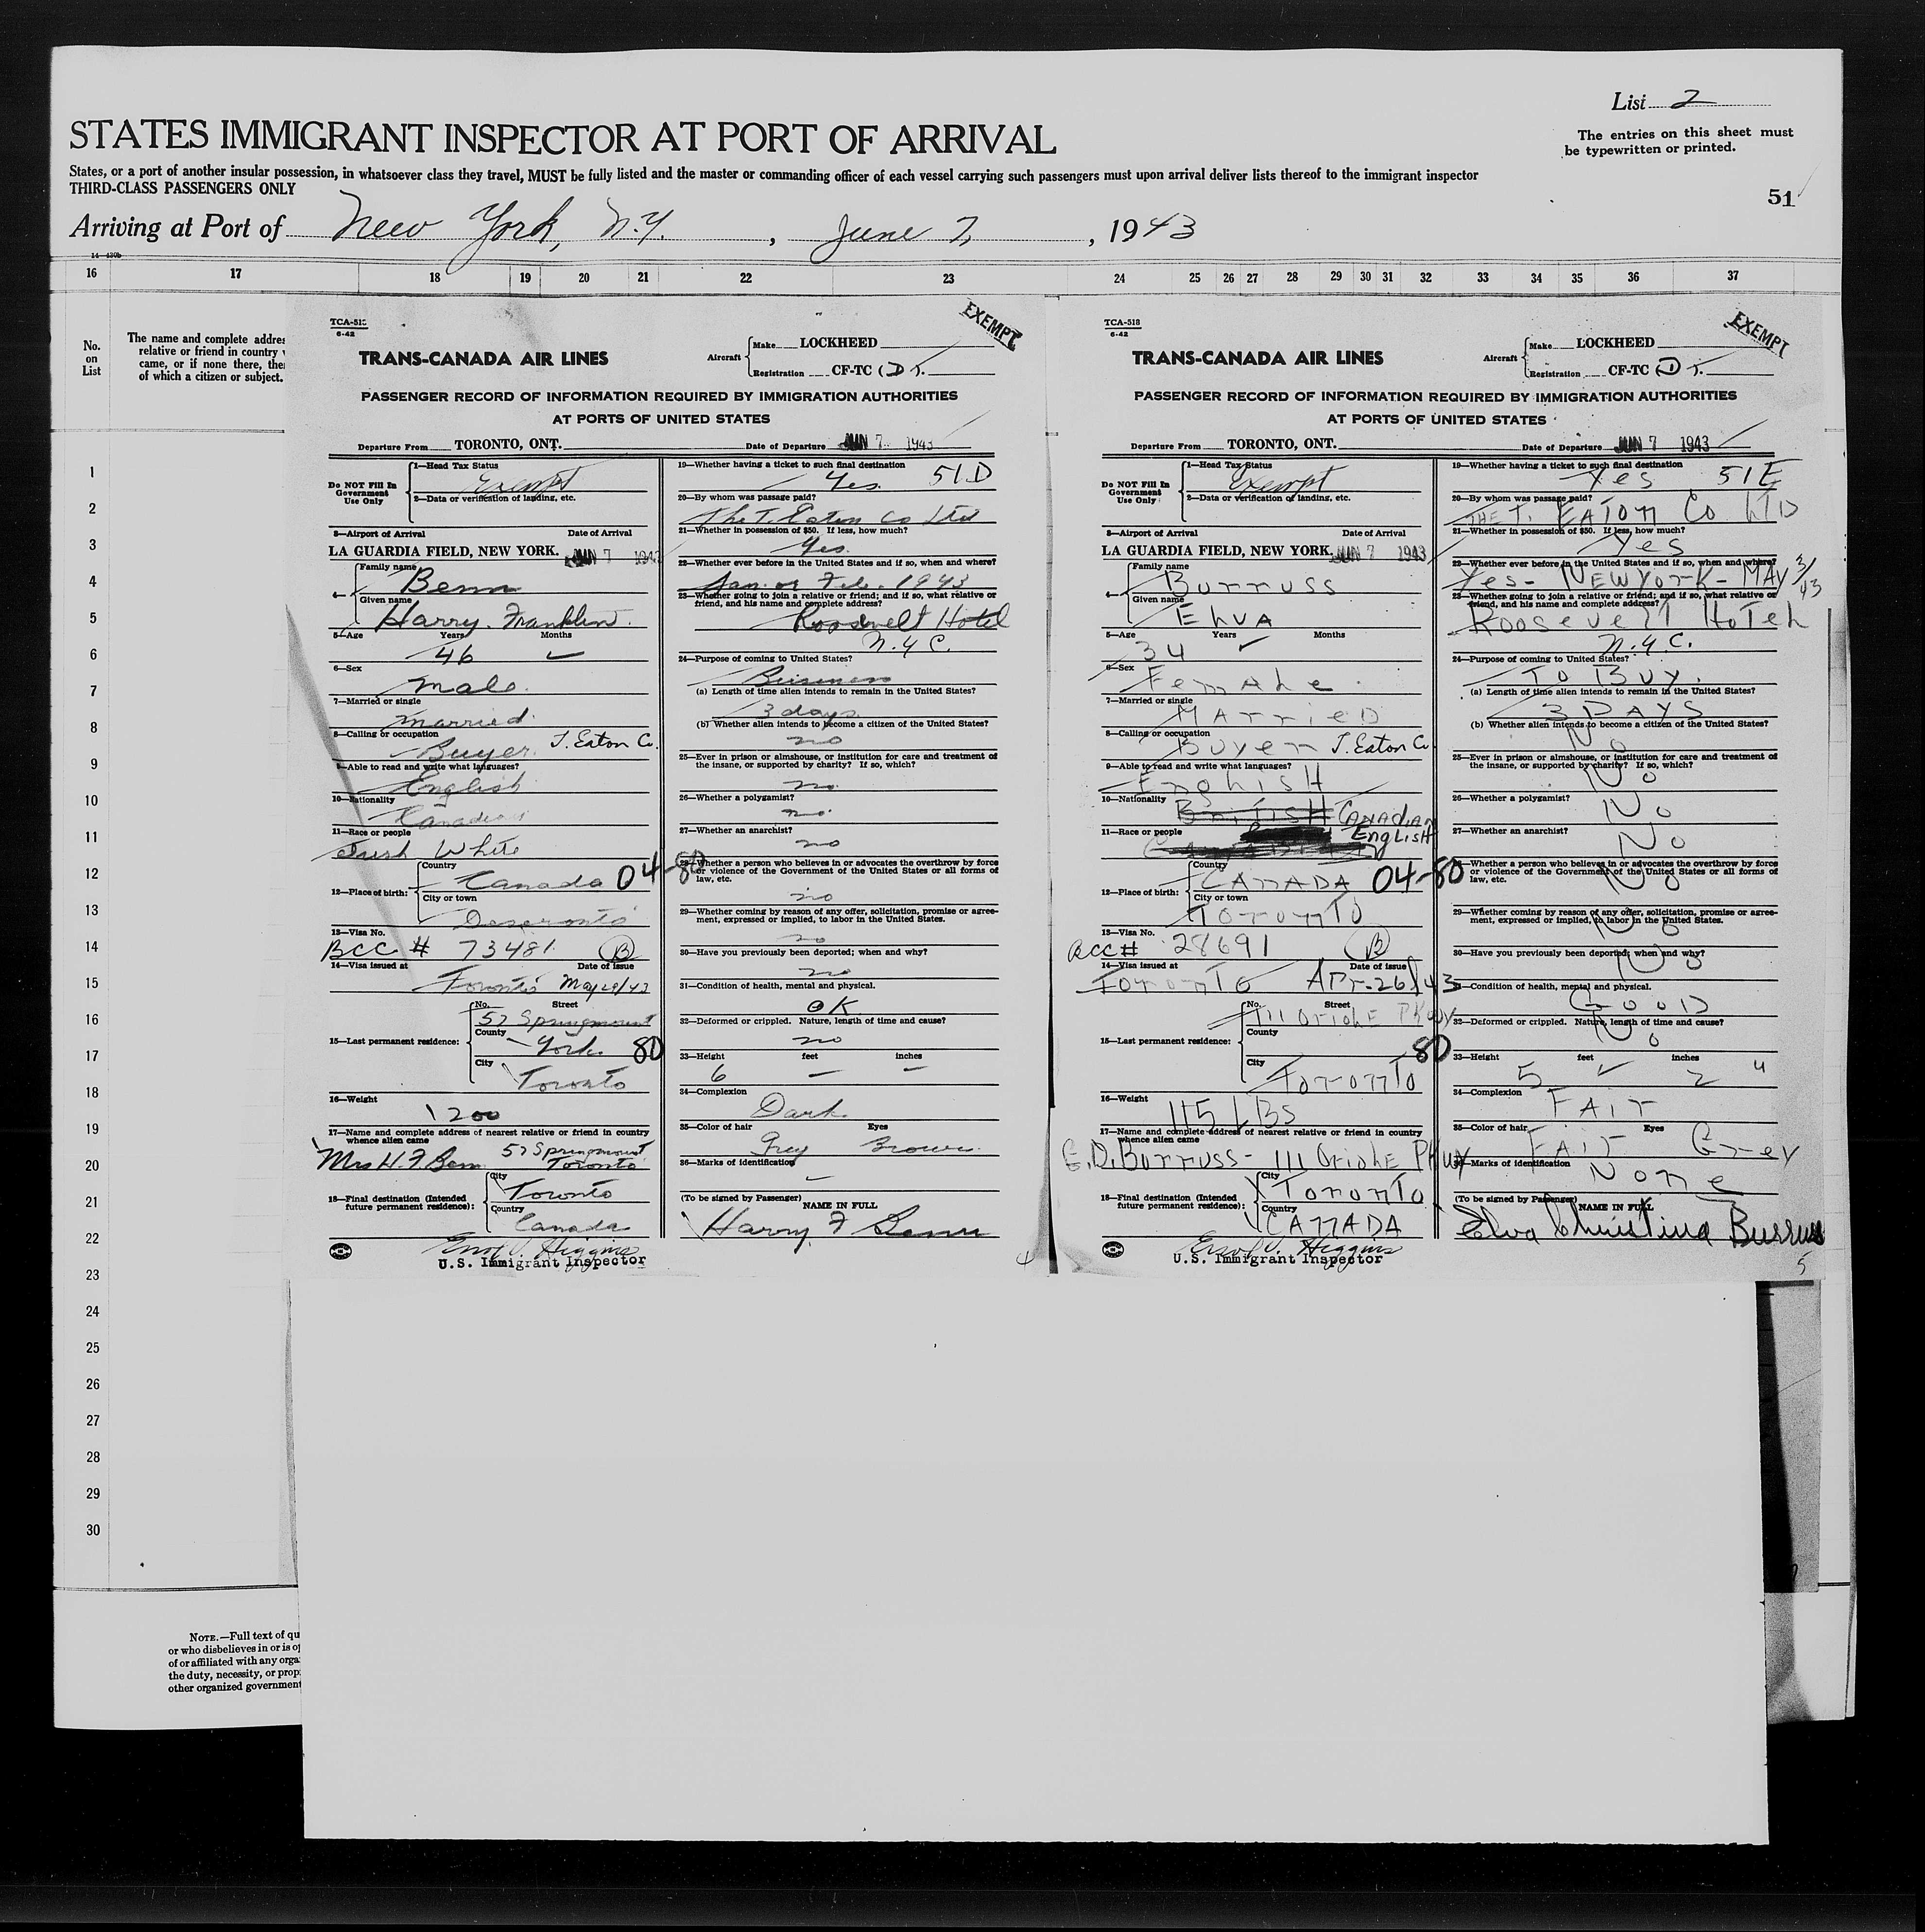 List 2
STATES IMMIGRANT INSPECTOR AT PORT OF ARRIVAL
The entries on this sheet must
be typewritten or printed.
States, or a port of another insular possession, in whatsoever class they travel, MUST be fully listed and the master or commanding officer of each vessel carrying such passengers must upon arrival deliver lists thereof to the immigrant inspector
THIRD-CLASS PASSENGERS ONLY
51
Arriving at Port of New York, N.Y. , June 7, , 1943
16 17 18 19 20 21 22 23 24 25 26 27 28 29 30 31 32 33 34 35 36 37
No.
on
List
The name and complete addres
relative or friend in country
came, or if none there, the
of which a citizen or subject.
1
2
3
4
5
6
7
8
9
10
11
12
13
14
15
16
17
18
19
20
21
22
23
24
25
26
27
28
29
30
NOTE.—Full text of qu
or who disbelieves in or is o
of or affiliated with any orga
the duty, necessity, or prop
other organized government
TCA-518
6-42
EXEMPT
TRANS-CANADA AIR LINES
Aircraft Make LOCKHEED
Registration CF-TC (D) T.
PASSENGER RECORD OF INFORMATION REQUIRED BY IMMIGRATION AUTHORITIES
AT PORTS OF UNITED STATES
Departure From TORONTO, ONT. Date of Departure JUN 7 1943
Do NOT Fill In
Government
Use Only
1—Head Tax Status
Exempt
2—Data or verification of landing, etc.
3—Airport of Arrival Date of Arrival
LA GUARDIA FIELD, NEW YORK. JUN 7 1943
4— Family name
Benn
Given name
Harry. Franklin.
5—Age Years Months
46
6—Sex
Male.
7—Married or single
Married.
8—Calling or occupation
Buyer. T. Eaton Co.
9—Able to read and write what languages?
English
10—Nationality
Canadian
11—Race or people
Irish White
12—Place of birth: Country
Canada 04-80
City or town
Deseronto
13—Visa No.
BCC # 73481 (B)
14—Visa issued at Date of issue
Toronto May 29/43
15—Last permanent residence: No. Street
57 Springmount
County
York 80
City
Toronto
16—Weight
200
17—Name and complete address of nearest relative or friend in country
whence alien came
57 Springmount
Mrs H. F. Benn Toronto
18—Final destination (Intended
future permanent residence): City
Toronto
Country
Canada
Higgins
U.S. Immigrant Inspector
19—Whether having a ticket to such final destination
Yes. 51D
20—By whom was passage paid?
The T. Eaton Co Ltd
21—Whether in possession of $50. If less, how much?
Yes.
22—Whether ever before in the United States and if so, when and where?
Jan. or Feb. 1943
23—Whether going to join a relative or friend; and if so, what relative or
friend, and his name and complete address?
Roosevelt Hotel
N.Y.C.
24—Purpose of coming to United States?
Business
(a) Length of time alien intends to remain in the United States?
3 days
(b) Whether alien intends to become a citizen of the United States?
no
25—Ever in prison or almshouse, or institution for care and treatment of
the insane, or supported by charity? If so, which?
no
26—Whether a polygamist?
no
27—Whether an anarchist?
no
28—Whether a person who believes in or advocates the overthrow by force
or violence of the Government of the United States or all forms of
law, etc.
no
29—Whether coming by reason of any offer, solicitation, promise or agree-
ment, expressed or implied, to labor in the United States.
no
30—Have you previously been deported; when and why?
no
31—Condition of health, mental and physical.
OK
32—Deformed or crippled. Nature, length of time and cause?
no
33—Height feet inches
6 — —
34—Complexion
Dark
35—Color of hair Eyes
Grey Brown
36—Marks of identification
—
(To be signed by Passenger) NAME IN FULL
Harry. F Benn
4
TCA-518
6-42
EXEMPT
TRANS-CANADA AIR LINES
Aircraft Make LOCKHEED
Registration CF-TC (D) T.
PASSENGER RECORD OF INFORMATION REQUIRED BY IMMIGRATION AUTHORITIES
AT PORTS OF UNITED STATES
Departure From TORONTO, ONT. Date of Departure JUN 7 1943
Do NOT Fill In
Government
Use Only
1—Head Tax Status
Exempt
2—Data or verification of landing, etc.
3—Airport of Arrival Date of Arrival
LA GUARDIA FIELD, NEW YORK. JUN 7 1943
4— Family name
Burruss
Given name
ELVA
5—Age Years Months
34
6—Sex
FemALe.
7—Married or single
MArrieD
8—Calling or occupation
Buyer T. Eaton Co.
9—Able to read and write what languages?
EngLisH
10—Nationality
BritisH CANADIAN
11—Race or people
ENGLISH
12—Place of birth: Country
CANADA 04-80
City or town
ToronTo
13—Visa No.
BCC# 28691 (B)
14—Visa issued at Date of issue
ToronTo Apr-26/43
15—Last permanent residence: No. Street
111 OrioLE PKwy
County
80
City
ToronTo
16—Weight
115 LBS
17—Name and complete address of nearest relative or friend in country
whence alien came
E.D. Burruss- 111 OrioLE PKwy
18—Final destination (Intended
future permanent residence): City
ToronTo
Country
CANADA
Higgins
U.S. Immigrant Inspector
19—Whether having a ticket to such final destination
Yes 51E
20—By whom was passage paid?
THE T. EATon Co LTD
21—Whether in possession of $50. If less, how much?
Yes
22—Whether ever before in the United States and if so, when and where?
Yes- NEWYorK- MAy 3/43
23—Whether going to join a relative or friend; and if so, what relative or
friend, and his name and complete address?
RooseveLT HoTeL
N.Y.C.
24—Purpose of coming to United States?
To Buy.
(a) Length of time alien intends to remain in the United States?
3 DAYS
(b) Whether alien intends to become a citizen of the United States?
No
25—Ever in prison or almshouse, or institution for care and treatment of
the insane, or supported by charity? If so, which?
No
26—Whether a polygamist?
No
27—Whether an anarchist?
No
28—Whether a person who believes in or advocates the overthrow by force
or violence of the Government of the United States or all forms of
law, etc.
No
29—Whether coming by reason of any offer, solicitation, promise or agree-
ment, expressed or implied, to labor in the United States.
No
30—Have you previously been deported; when and why?
No
31—Condition of health, mental and physical.
GooD
32—Deformed or crippled. Nature, length of time and cause?
No
33—Height feet inches
5 2 "
34—Complexion
FAir
35—Color of hair Eyes
FAir Grey
36—Marks of identification
None
(To be signed by Passenger) NAME IN FULL
Elva Christina Burruss
5